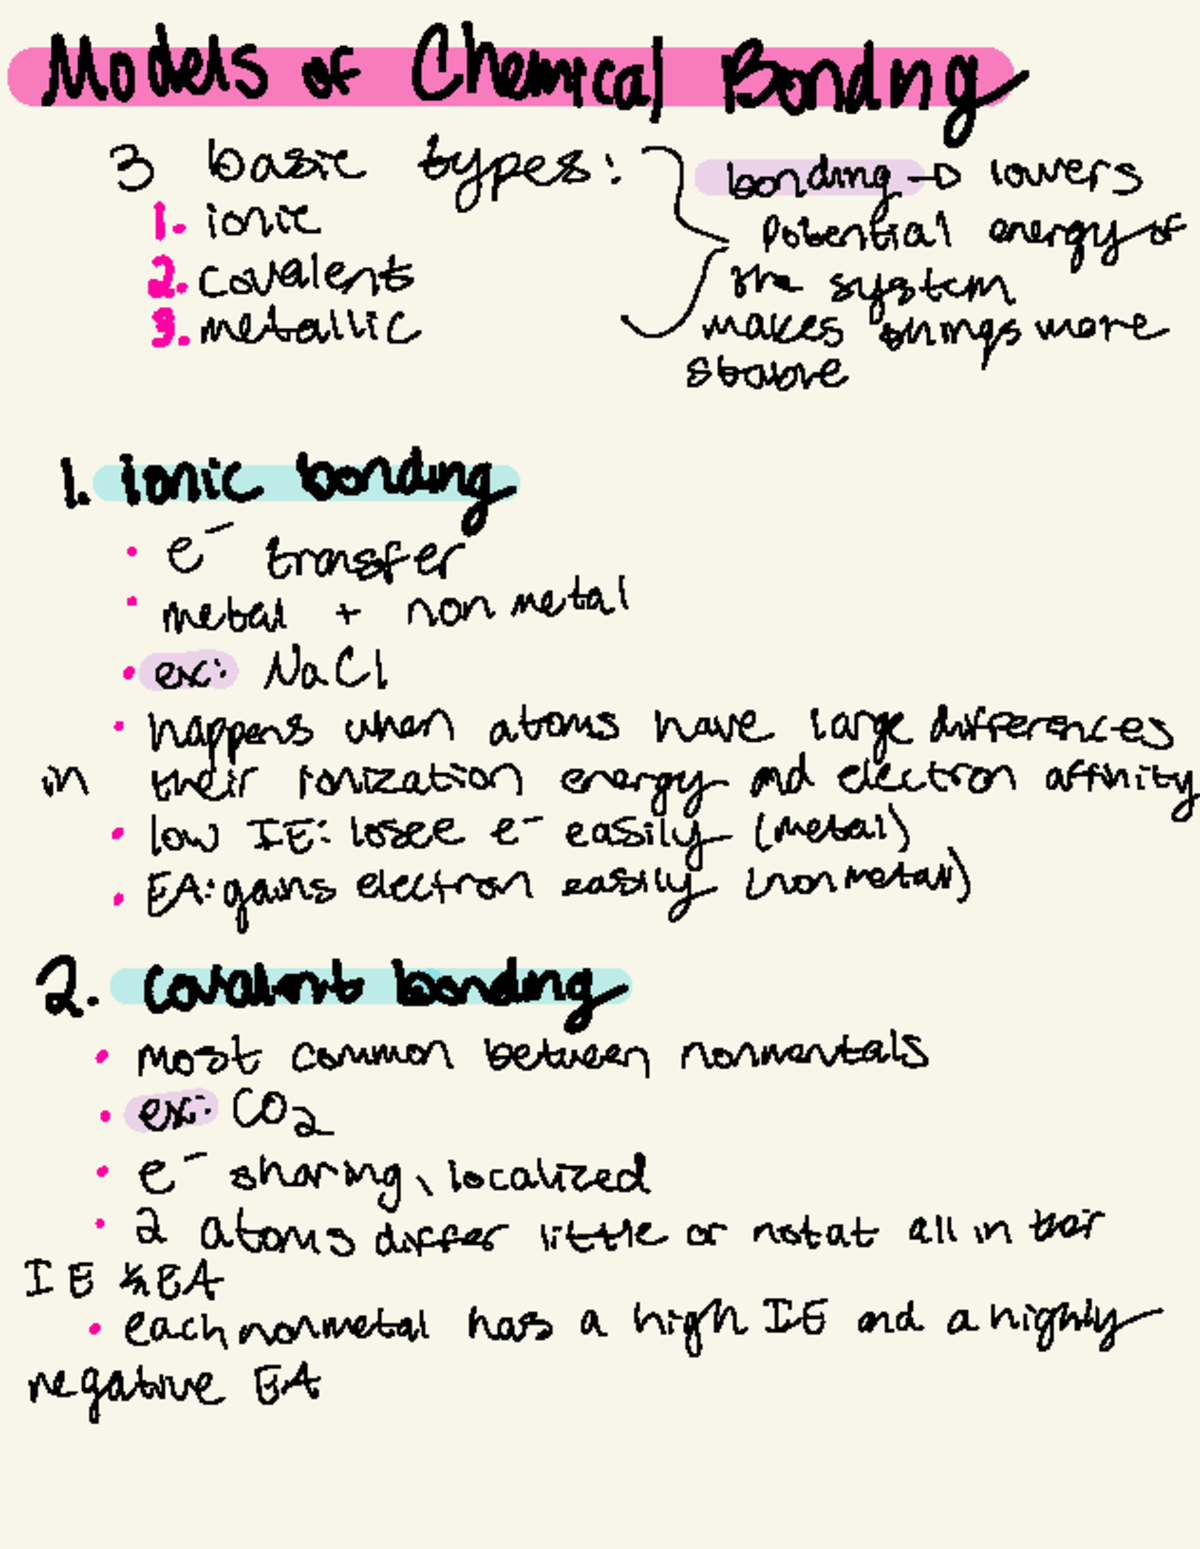 Models of Chemical Bonding
3 basic types:
1. ionic
2. covalent
3. metallic
bonding → lowers
potential energy of
the system
makes things more
stable
1. ionic bonding
• e⁻ transfer
• metal + nonmetal
• ex: NaCl
• happens when atoms have large differences
in their ionization energy and electron affinity
• low IE: losee e⁻ easily (metal)
• EA: gains electron easily (nonmetal)
2. Covalent bonding
• most common between nonmentals
• ex: CO₂
• e⁻ sharing, localized
• 2 atoms differ little or not at all in their
IE & EA
• each nonmetal has a high IE and a highly
negative EA